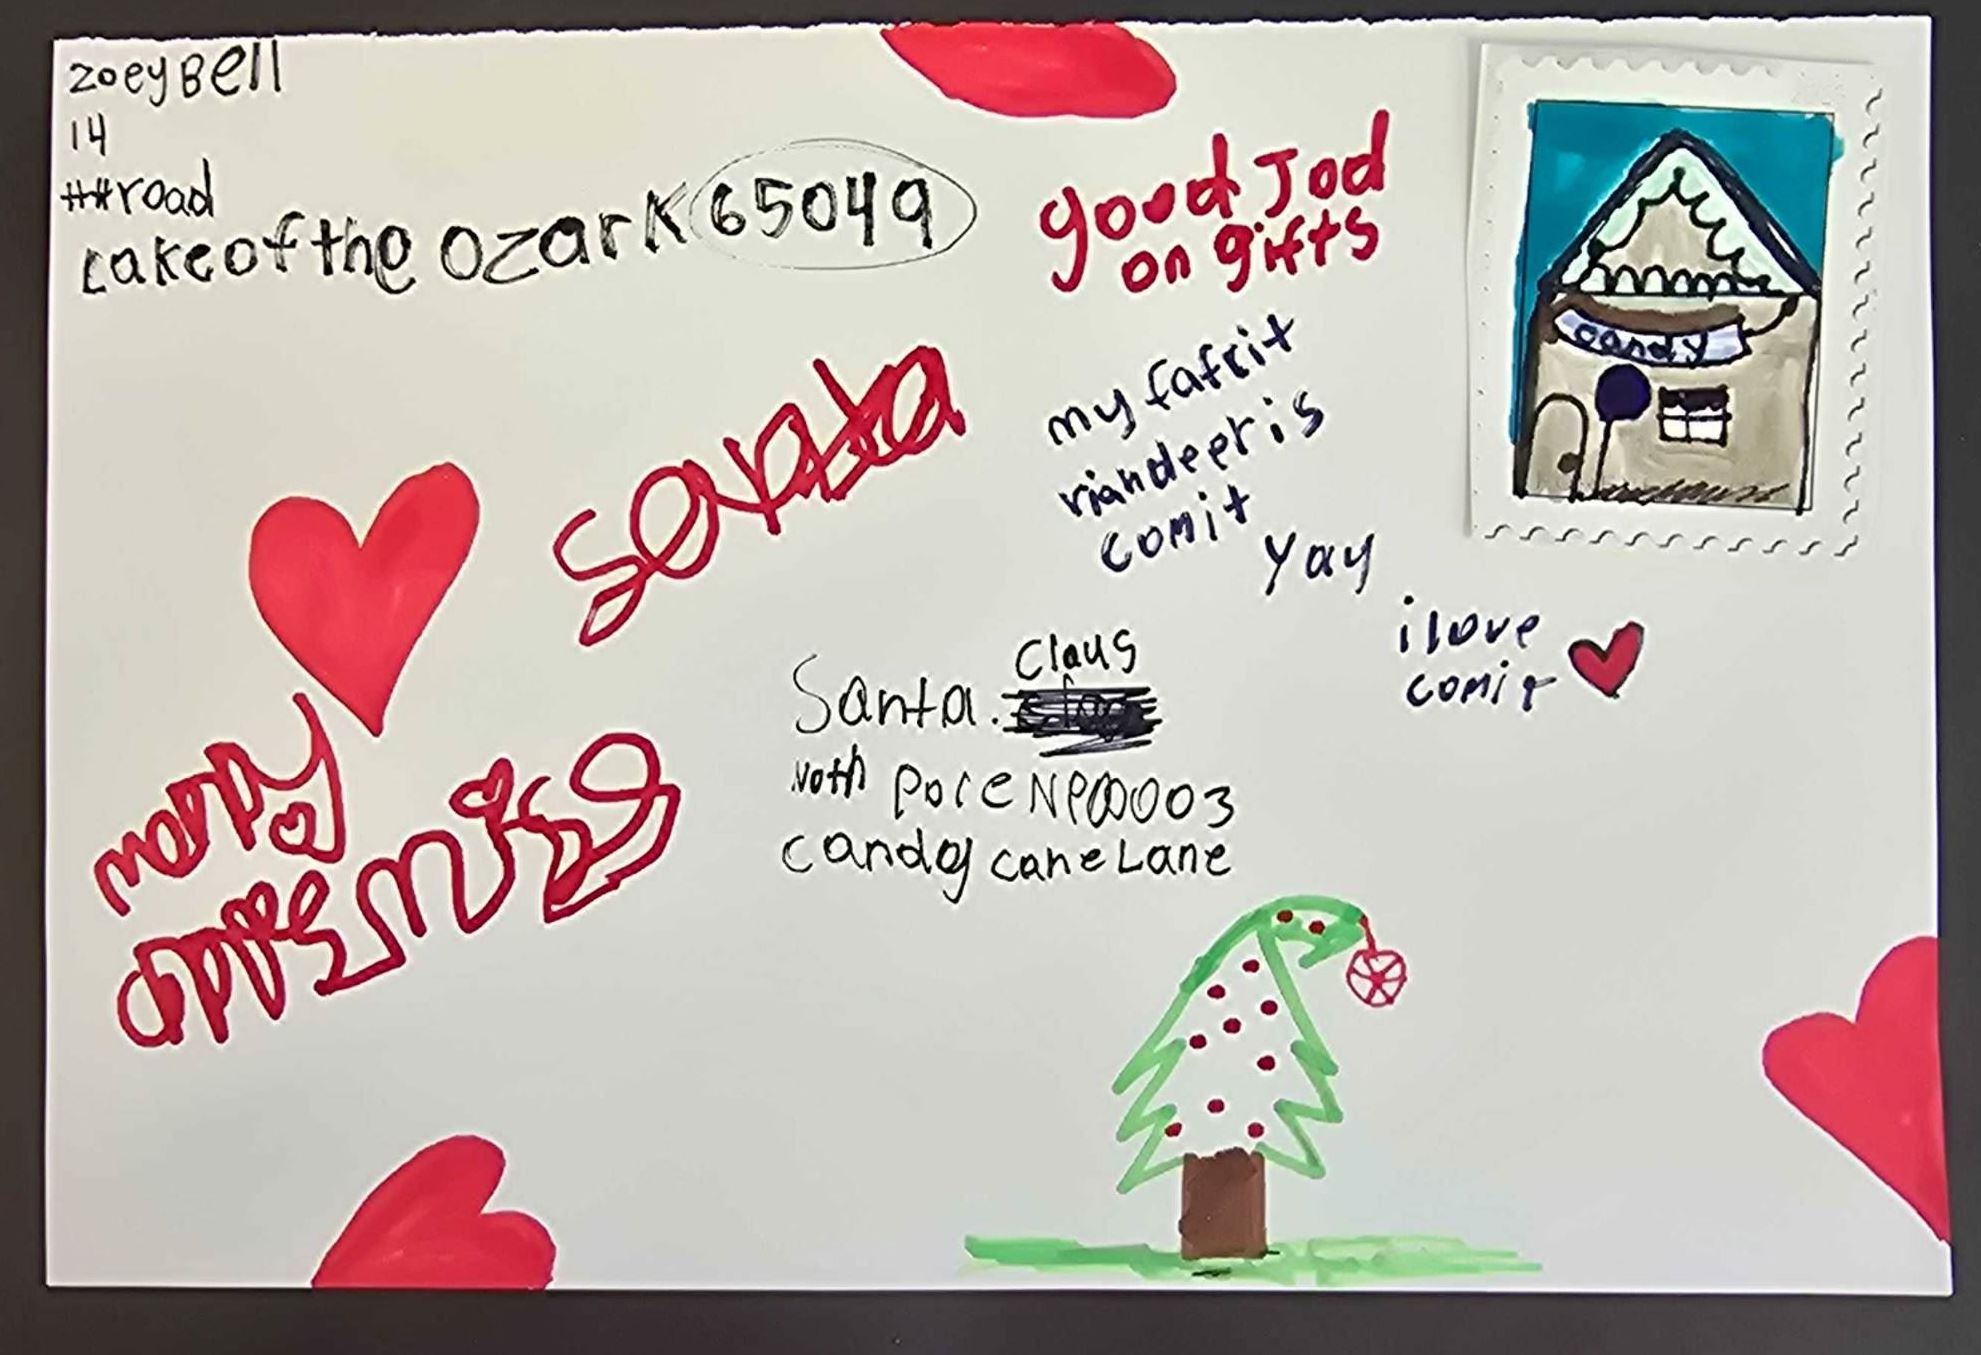 zoey Bell
14
##road
Lake of the ozark 65049
good Jod
on gifts
my fafrit
riandeer is
comit
yay
i love
comit
candy
Santa. Claus
Noth pole NP00003
candy cane Lane